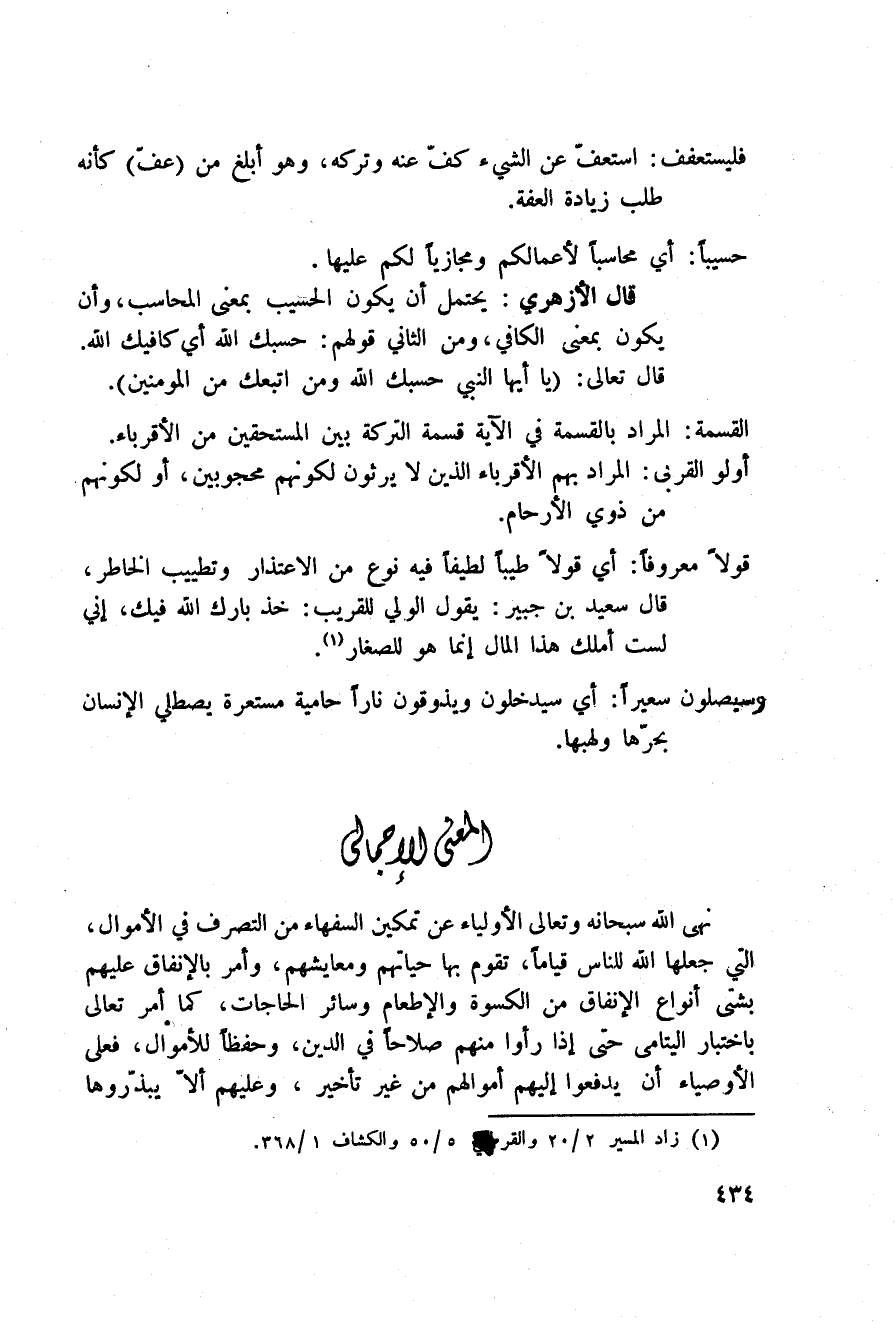 فليستعفف: استعفّ عن الشيء كفّ عنه وتركه، وهو أبلغ من (عفّ) كأنه
طلب زيادة العفة.
حسيباً: أي محاسباً لأعمالكم ومجازياً لكم عليها.
قال الأزهري: يحتمل أن يكون الحسيب بمعنى المحاسب، وأن
يكون بمعنى الكافي، ومن الثاني قولهم: حسبك الله أي كافيك الله.
قال تعالى: (يا أيها النبي حسبك الله ومن اتبعك من المومنين).
القسمة: المراد بالقسمة في الآية قسمة التركة بين المستحقين من الأقرباء.
أولو القربى: المراد بهم الأقرباء الذين لا يرثون لكونهم محجوبين، أو لكونهم
من ذوي الأرحام.
قولاً معروفاً: أي قولاً طيباً لطيفاً فيه نوع من الاعتذار وتطييب الخاطر،
قال سعيد بن جبير: يقول الولي للقريب: خذ بارك الله فيك، إني
لست أملك هذا المال إنما هو للصغار(١).
وسيصلون سعيراً: أي سيدخلون ويذوقون ناراً حامية مستعرة يصطلي الإنسان
بحرّها ولهبها.
المعنى الإجمالي
نهى الله سبحانه وتعالى الأولياء عن تمكين السفهاء من التصرف في الأموال،
التي جعلها الله للناس قياماً، تقوم بها حياتهم ومعايشهم، وأمر بالإنفاق عليهم
بشتّى أنواع الإنفاق من الكسوة والإطعام وسائر الحاجات، كما أمر تعالى
باختبار اليتامى حتّى إذا رأوا منهم صلاحاً في الدين، وحفظاً للأموال، فعلى
الأوصياء أن يدفعوا إليهم أموالهم من غير تأخير، وعليهم ألاّ يبذّروها
(١) زاد المسير ٢٠/٢ ٥٠/٥ والكشاف ٣٦٨/١.
٤٣٤